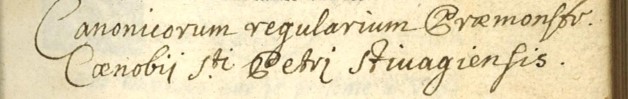 Canonicorum regularium Præmonstr.
Cœnobij sti Petrj stiuagiensis.